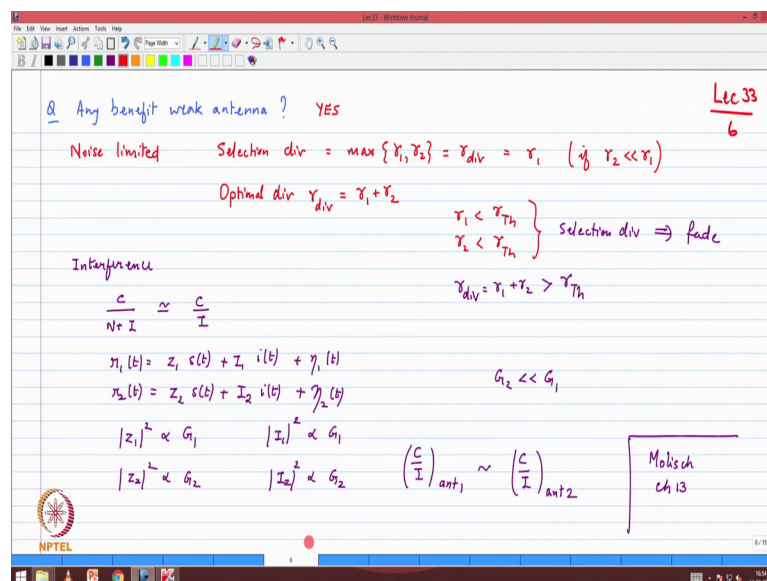 Lec33 - Windows Journal
File Edit View Insert Actions Tools Help
Page Width
B I
Lec 33
6
Q Any benefit weak antenna ? YES
Noise limited Selection div = max {γ₁, γ₂} = γ_div = γ₁ (if γ₂ << γ₁)
Optimal div γ_div = γ₁ + γ₂
γ₁ < γ_Th
γ₂ < γ_Th } Selection div ⇒ fade
γ_div = γ₁ + γ₂ > γ_Th
Interference
C/(N+I) ≃ C/I
r₁(t) = z₁ s(t) + I₁ i(t) + η₁(t)
r₂(t) = z₂ s(t) + I₂ i(t) + η₂(t)
G₂ << G₁
|z₁|² ∝ G₁ |I₁|² ∝ G₁
|z₂|² ∝ G₂ |I₂|² ∝ G₂
(C/I)_ant1 ~ (C/I)_ant2
Molisch
ch 13
NPTEL
6
6/15
16:54